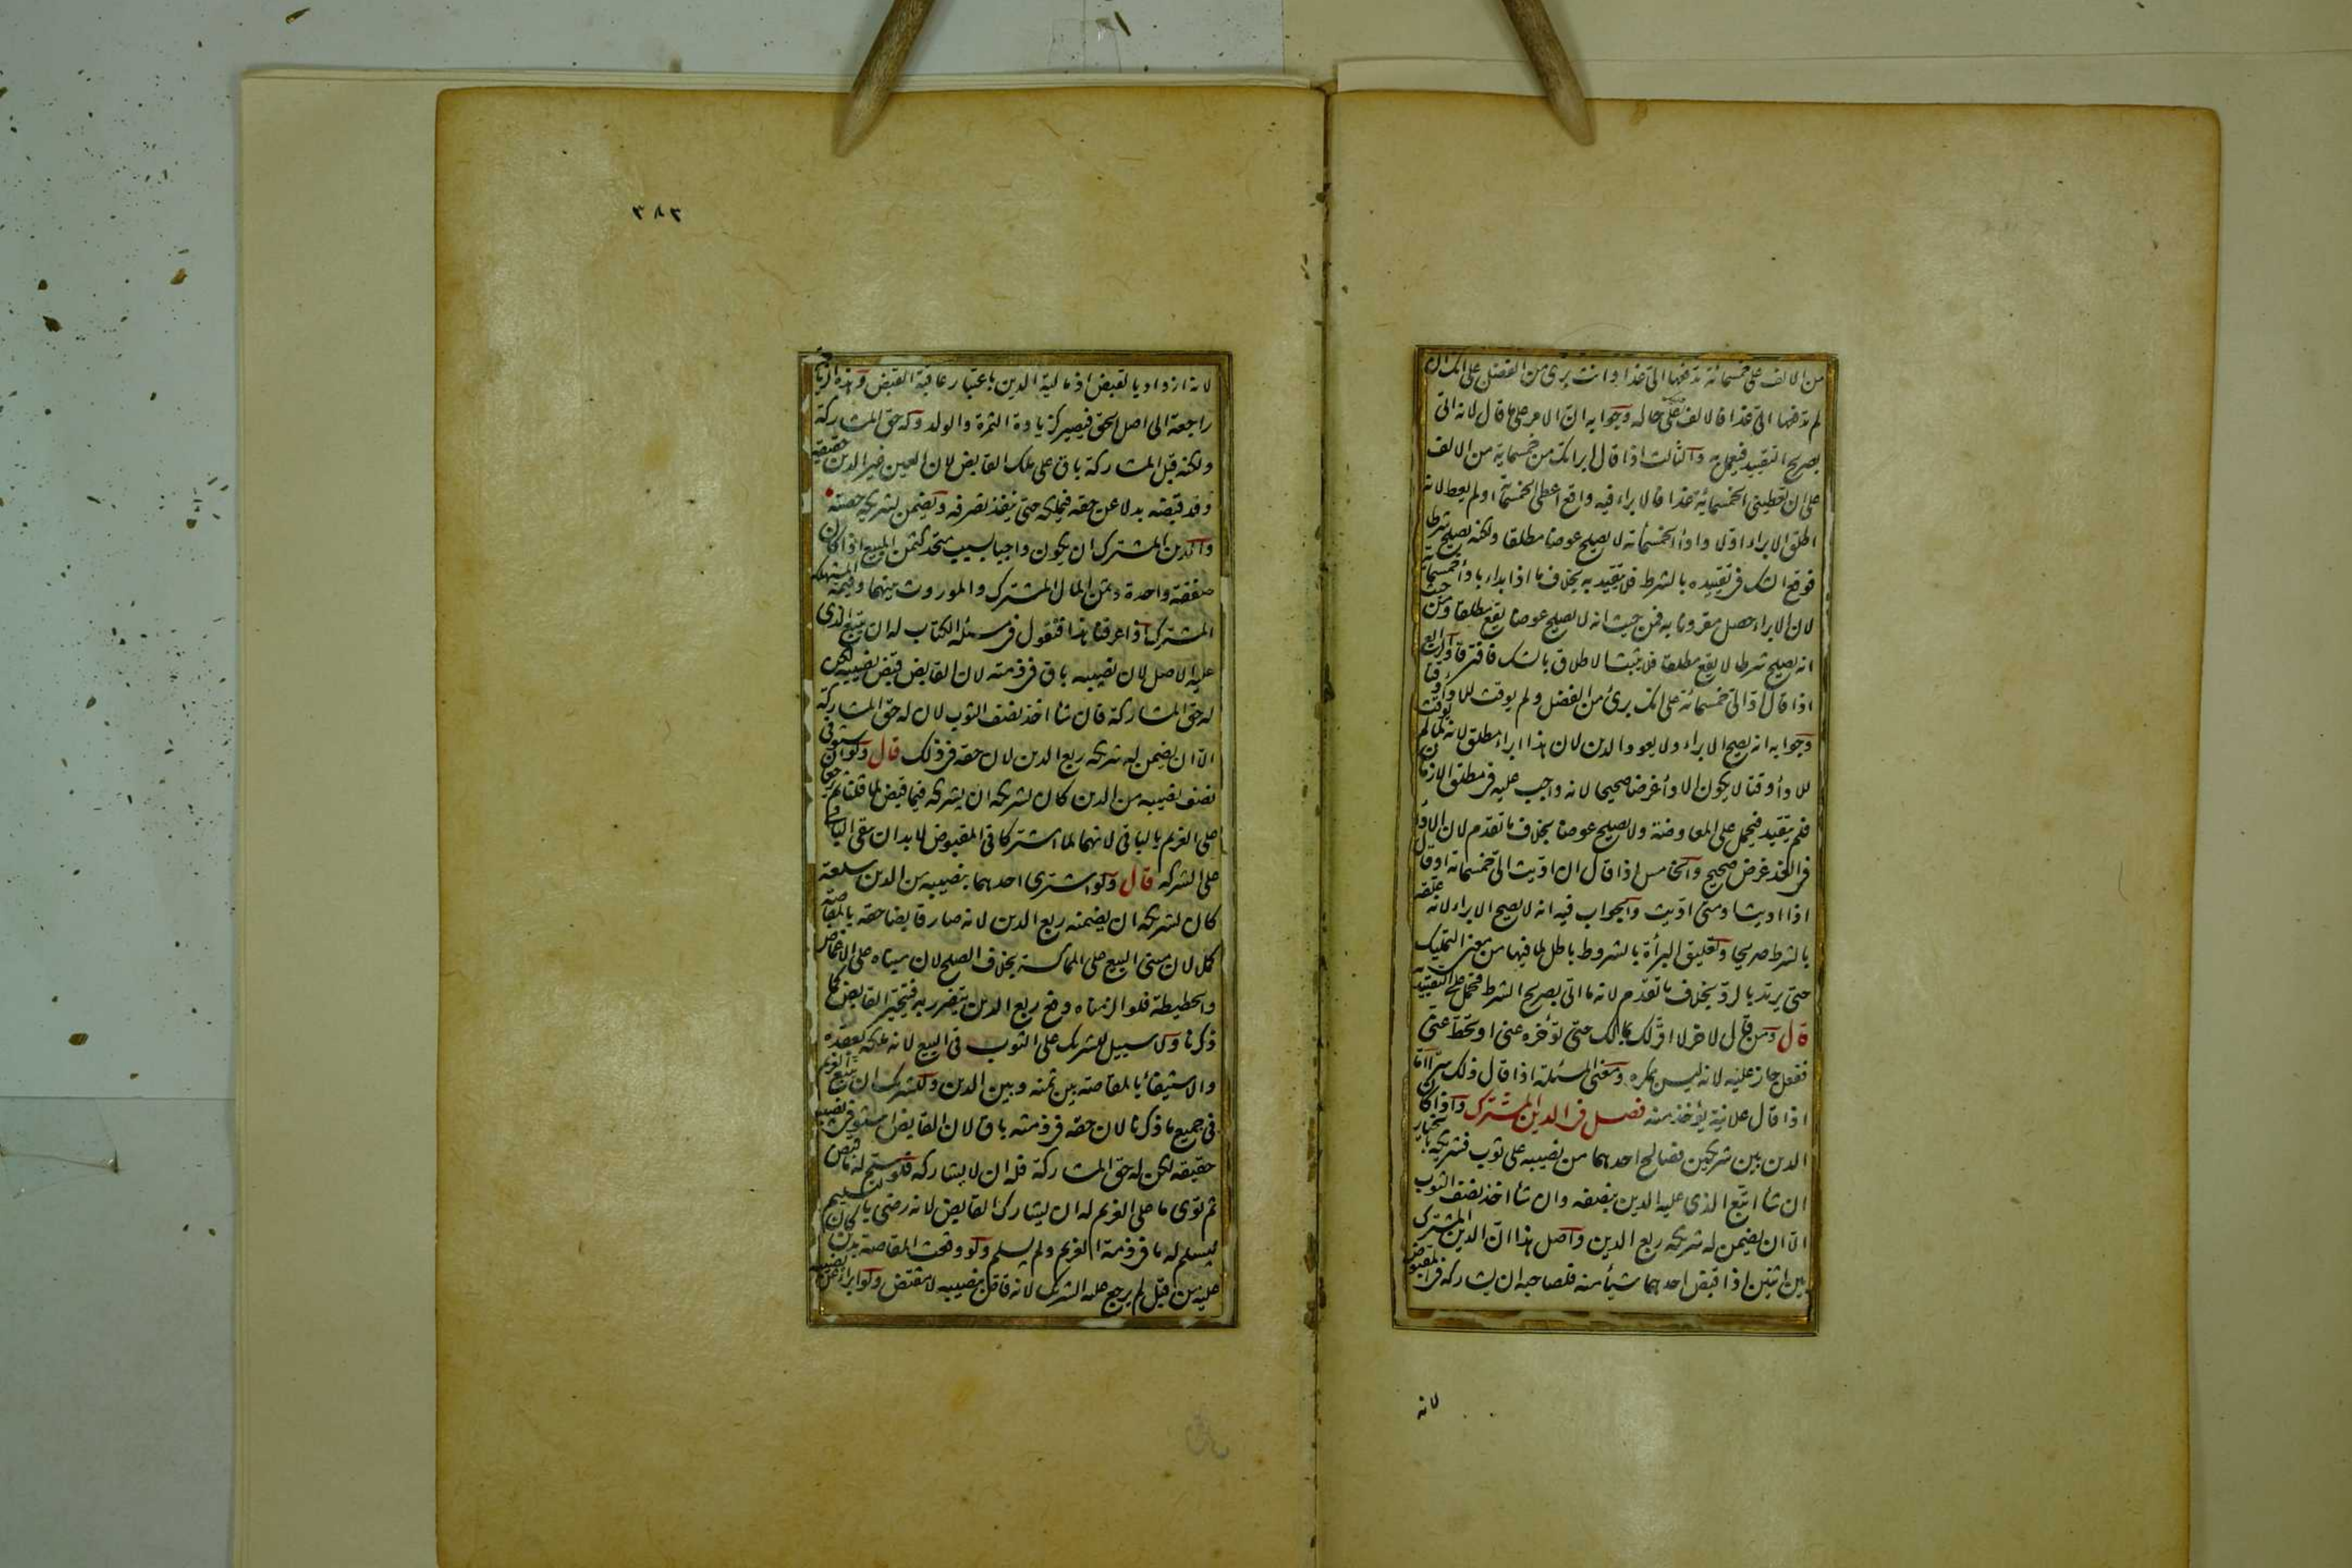 من الالف على خمسمائة تدفعها الىّ غدا وانت برئ من الفضل على انك ان
لم تدفعها الىّ غدا فالالف على حاله وجوابه ان الامر على ما قال لانه اتى
بصريح التقييد فيعمل به والثالث اذا قال ابرأتك من خمسمائة من الالف
على ان تعطينى الخمسمائة غدا فالابراء فيه واقع اعطى الخمسمائة او لم يعط لانه
اطلق الابراء اولا واداء الخمسمائة لا يصلح عوضا مطلقا ولكنه يصلح شرطا
فوقع الشك فى تقييده بالشرط فلا يتقيد به بخلاف ما اذا بداء باداء خمسمائة
لان الابراء حصل مقرونا به فمن حيث انه لا يصلح عوضا يقع مطلقا ومن حيث
انه يصلح شرطا لا يقع مطلقا فلا يثبت الاطلاق بالشك فافترقا والرابع
اذا قال ادّ الىّ خمسمائة على انك برئ من الفضل ولم يوقت للاداء وقتا
وجوابه انه يصح الابراء ولا يعود الدين لان هذا ابراء مطلق لانه لما لم يوقت
للاداء وقتا لا يكون الاداء غرضا صحيحا لانه واجب عليه فى مطلق الازمان
فلم يتقيد فيحمل على المعاوضة ولا يصلح عوضا بخلاف ما تقدم لان الاداء
فى الغد غرض صحيح والخامس اذا قال ان اديت الىّ خمسمائة او قال
اذا اديت او متى اديت والجواب فيه انه لا يصح الابراء لانه علقه
بالشرط صريحا وتعليق البرأة بالشروط باطل لما فيها من معنى التمليك
حتى يرتد بالرد بخلاف ما تقدم لانه ما اتى بصريح الشرط فحمل على التقييد به
قال ومن قال لاخر لا اقر لك بمالك حتى تؤخره عنى او تحط عنى
ففعل جاز عليه لانه ليس بمكره ومعنى المسئلة اذا قال ذلك سرّا اما
اذا قال علانية يؤخذ منه فصل فى الدين المشترك واذا كان
الدين بين شريكين فصالح احدهما من نصيبه على ثوب فشريكه بالخيار
ان شاء اتبع الذى عليه الدين بنصفه وان شاء اخذ نصف الثوب
الّا ان يضمن له شريكه ربع الدين واصل هذا ان الدين المشترك
بين اثنين اذا قبض احدهما شيأ منه فلصاحبه ان يشاركه فى المقبوض
لانه
٣٨٣
لانه ازداد بالقبض اذ مالية الدين باعتبار عاقبة القبض وهذه الزيادة
راجعة الى اصل الحق فيصير كزيادة الثمرة والولد وله حق المشاركة
ولكنه قبل المشاركة باق على ملك القابض لان العين غير الدين حقيقة
وقد قبضه بدلا عن حقه فيملكه حتى ينفذ تصرفه ويضمن لشريكه حصته
والدين المشترك ان يكون واجبا بسبب متحد كثمن المبيع اذا كان
صفقة واحدة وثمن المال المشترك والموروث بينهما وقيمة المستهلك
المشترك اذا عرفنا هذا فنقول فى مسئلة الكتاب له ان يتبع الذى
عليه الاصل لان نصيبه باق فى ذمته لان القابض قبض نصيبه لكن
له حق المشاركة فان شاء اخذ نصف الثوب لان له حق المشاركة
الّا ان يضمن له شريكه ربع الدين لان حقه فى ذلك قال ولو استوفى
نصف نصيبه من الدين كان لشريكه ان يشركه فيما قبض لما قلنا ثم يرجعا
على الغريم بالباقى لانهما لما اشتركا فى المقبوض لا بد ان يبقى الباقى
على الشركه قال ولو اشترى احدهما بنصيبه من الدين سلعة
كان لشريكه ان يضمنه ربع الدين لانه صار قابضا حقه بالمقاصة
كملا لان مبنى البيع على المماكسة بخلاف الصلح لان مبناه على الاغماض
والحطيطة فلو الزمناه دفع ربع الدين يتضرر به فيتخير القابض كما
ذكرنا ولا سبيل للشريك على الثوب فى البيع لانه ملكه بعقده
والاستيفاء بالمقاصة بين ثمنه وبين الدين وللشريك ان يتبع الغريم
فى جميع ما ذكرنا لان حقه فى ذمته باق لان القابض استوفى نصيبه
حقيقه لكن له حق المشاركة فله ان لا يشاركه فلو سلم له ما قبض
ثم توى ما على الغريم له ان يشارك القابض لانه رضى بالتسليم
ليسلم له ما فى ذمة الغريم ولم يسلم ولو وقعت المقاصة بدين كان
عليه من قبل لم يرجع عليه الشريك لانه قاض بنصيبه لا مقتض ولو ابراءه عن نصيبه